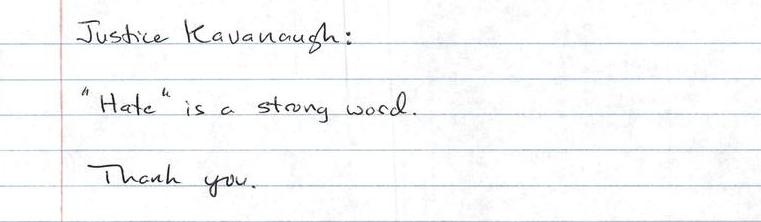 Justice Kavanaugh:
"Hate" is a strong word.
Thank you.